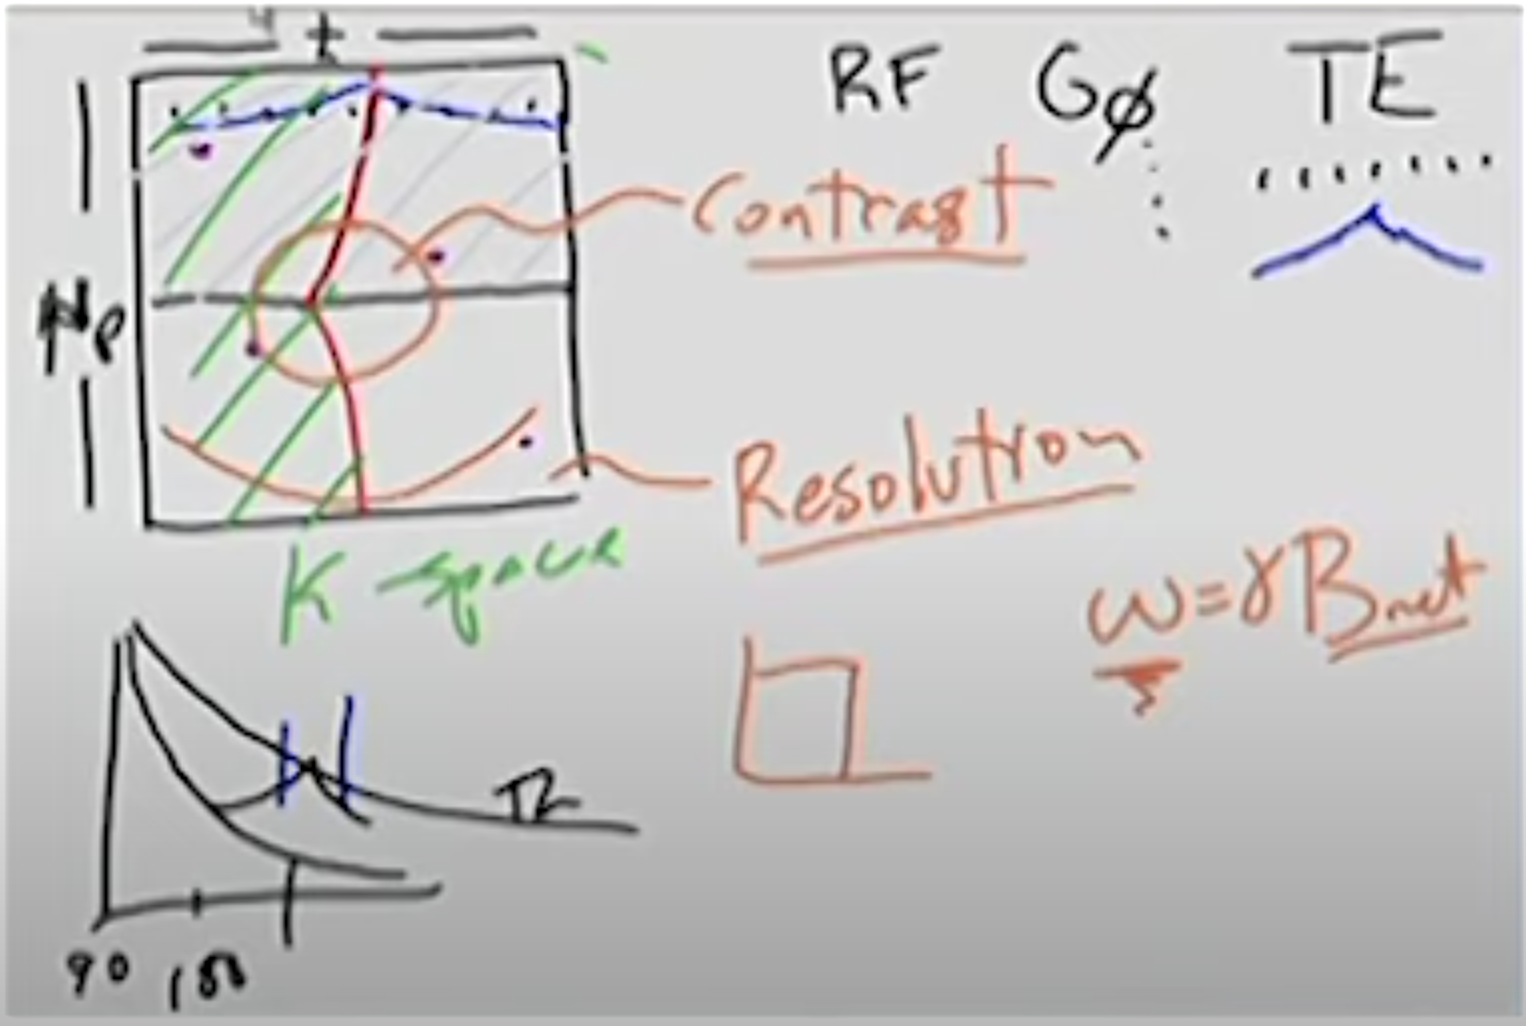 t
RF Gϕ TE
Contrast
Np
Resolution
K-space
ω=γBnet
T2
90 180